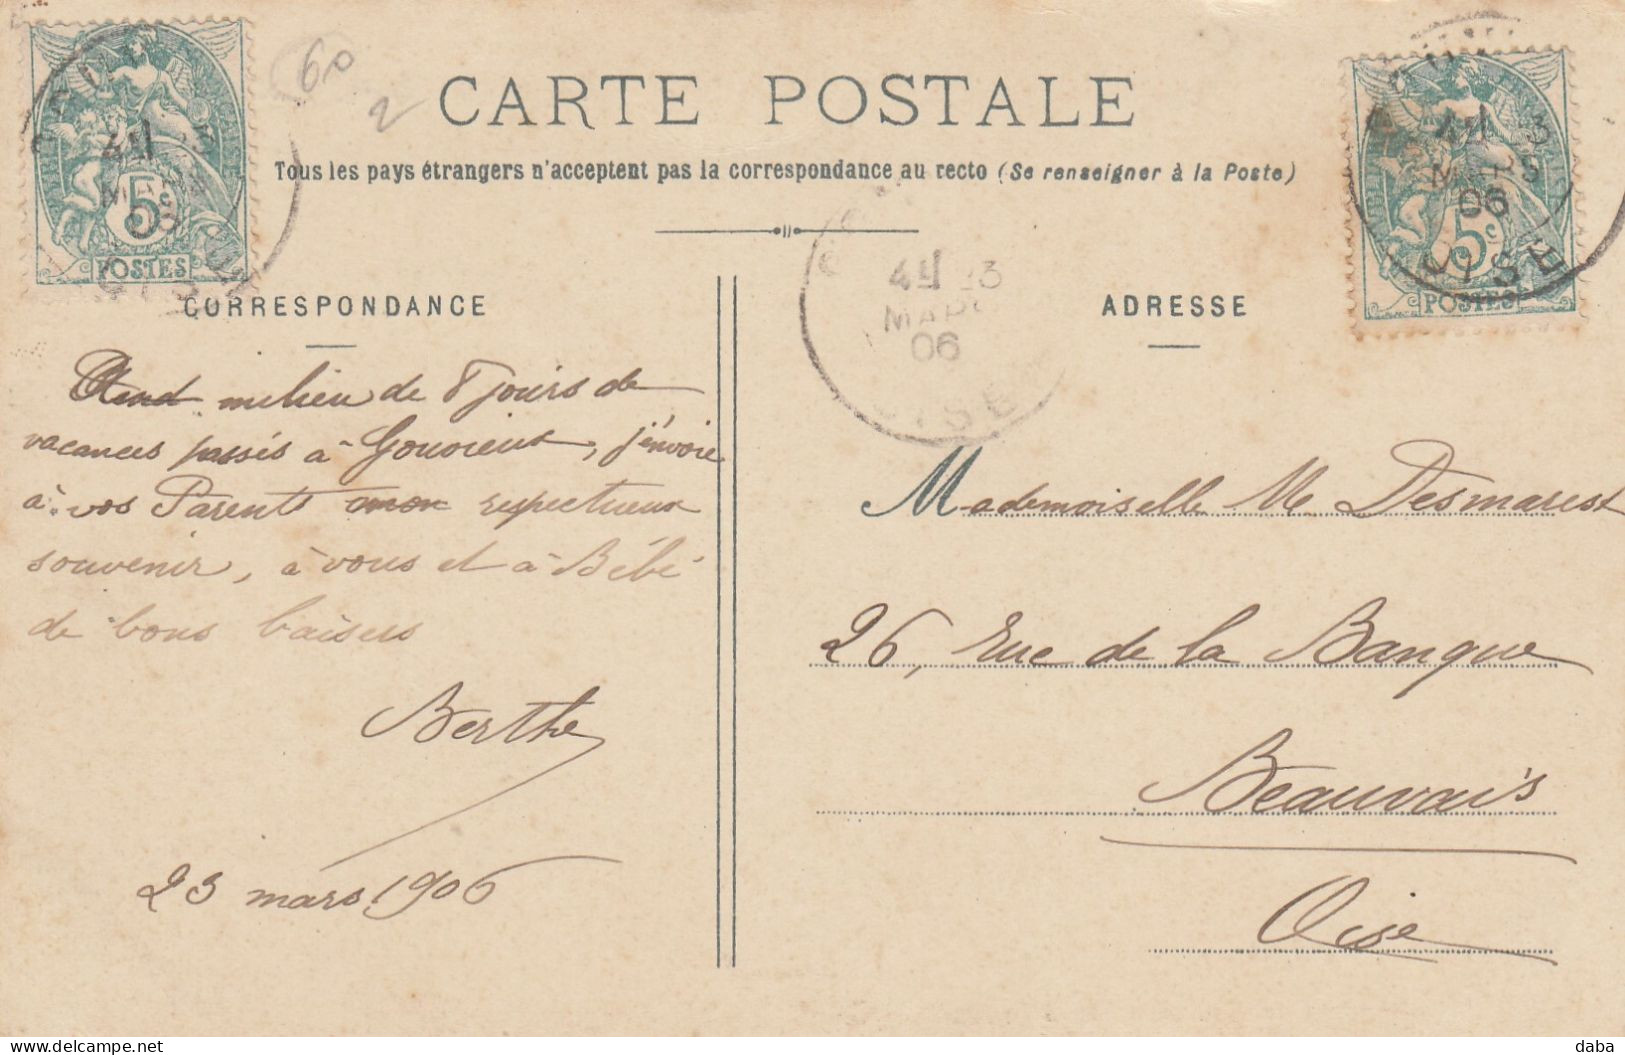 60
2
CARTE POSTALE
Tous les pays étrangers n'acceptent pas la correspondance au recto (Se renseigner à la Poste)
5c
POSTES
4H
MARS
OISE
4H 23
MARS
06
OISE
4H 3
MARS
06
OISE
5c
POSTES
CORRESPONDANCE
milieu de 8 jours de
vacances passés à Gouvieux, j'envoie
à vos Parents mon respectueux
souvenir, à vous et à Bébé
de bons baisers
Berthe
23 mars 1906
ADRESSE
Mademoiselle M. Desmarest
26, Rue de la Banque
Beauvais
Oise
Delcampe.net
daba